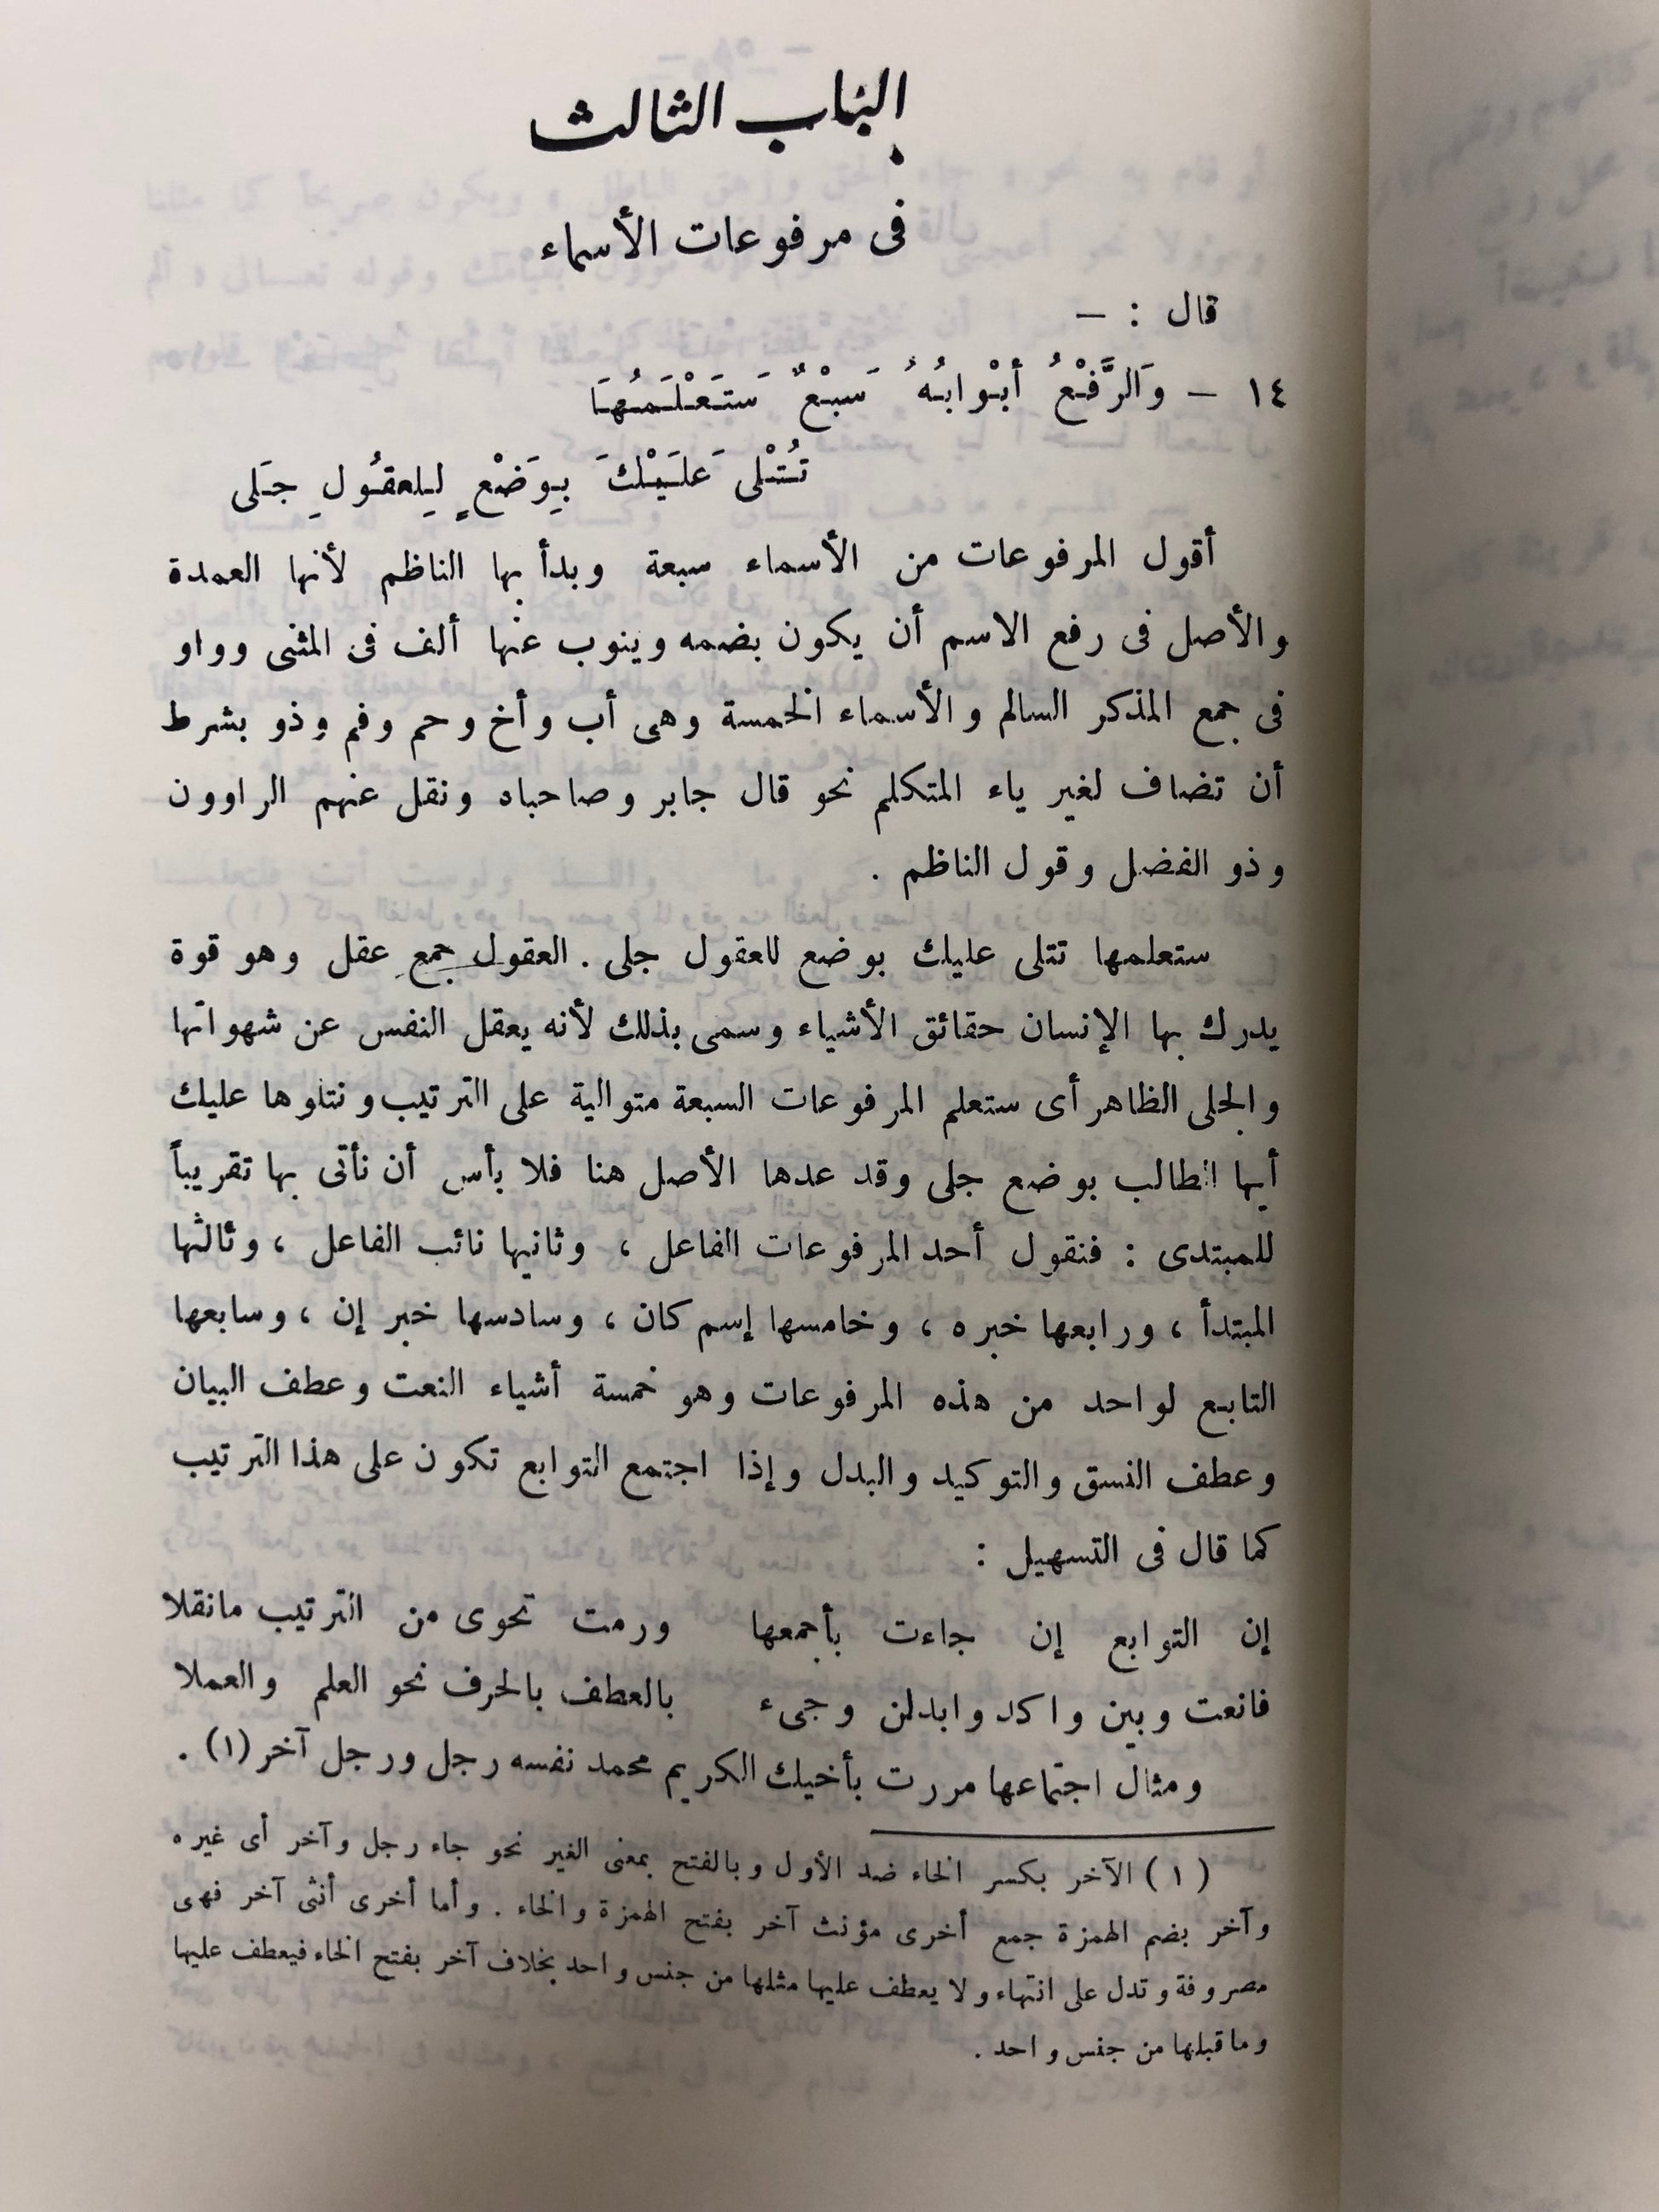 الباب الثالث
فى مرفوعات الأسماء
قال : —
١٤ – وَالرَّفْعُ أبْوابُهُ سَبْعٌ سَتَعْلَمُهَا
تُتْلى عَلَيْكَ بِوَضْعٍ لِلعقُولِ جَلى
أقول المرفوعات من الأسماء سبعة وبدأ بها الناظم لأنها العمدة
والأصل فى رفع الاسم أن يكون بضمه وينوب عنها ألف فى المثنى وواو
فى جمع المذكر السالم والأسماء الخمسة وهى أب وأخ وحم وفم وذو بشرط
أن تضاف لغير ياء المتكلم نحو قال جابر وصاحباه ونقل عنهم الراوون
وذو الفضل وقول الناظم .
ستعلمها تتلى عليك بوضع للعقول جلى . العقول جمع عقل وهو قوة
يدرك بها الإنسان حقائق الأشياء وسمى بذلك لأنه يعقل النفس عن شهواتها
والجلى الظاهر أى ستعلم المرفوعات السبعة متوالية على الترتيب ونتلوها عليك
أيها الطالب بوضع جلى وقد عدها الأصل هنا فلا بأس أن نأتى بها تقريباً
للمبتدى : فنقول أحد المرفوعات الفاعل ، وثانيها نائب الفاعل ، وثالثها
المبتدأ ، ورابعها خبره ، وخامسها إسم كان ، وسادسها خبر إن ، وسابعها
التابع لواحد من هذه المرفوعات وهو خمسة أشياء النعت وعطف البيان
وعطف النسق والتوكيد والبدل وإذا اجتمع التوابع تكون على هذا الترتيب
كما قال فى التسهيل :
إن التوابع إن جاءت بأجمعها ورمت تحوى من الترتيب مانقلا
فانعت وبين واكد وابدلن وجىء بالعطف بالحرف نحو العلم والعملا
ومثال اجتماعها مررت بأخيك الكريم محمد نفسه رجل ورجل آخر (١) .
(١) الآخر بكسر الخاء ضد الأول وبالفتح بمعنى الغير نحو جاء رجل وآخر أى غيره
وآخر بضم الهمزة جمع أخرى مؤنث آخر بفتح الهمزة والخاء . وأما أخرى أنثى آخر فهى
مصروفة وتدل على انتهاء ولا يعطف عليها مثلها من جنس واحد بخلاف آخر بفتح الخاء فيعطف عليها
وماقبلها من جنس واحد .